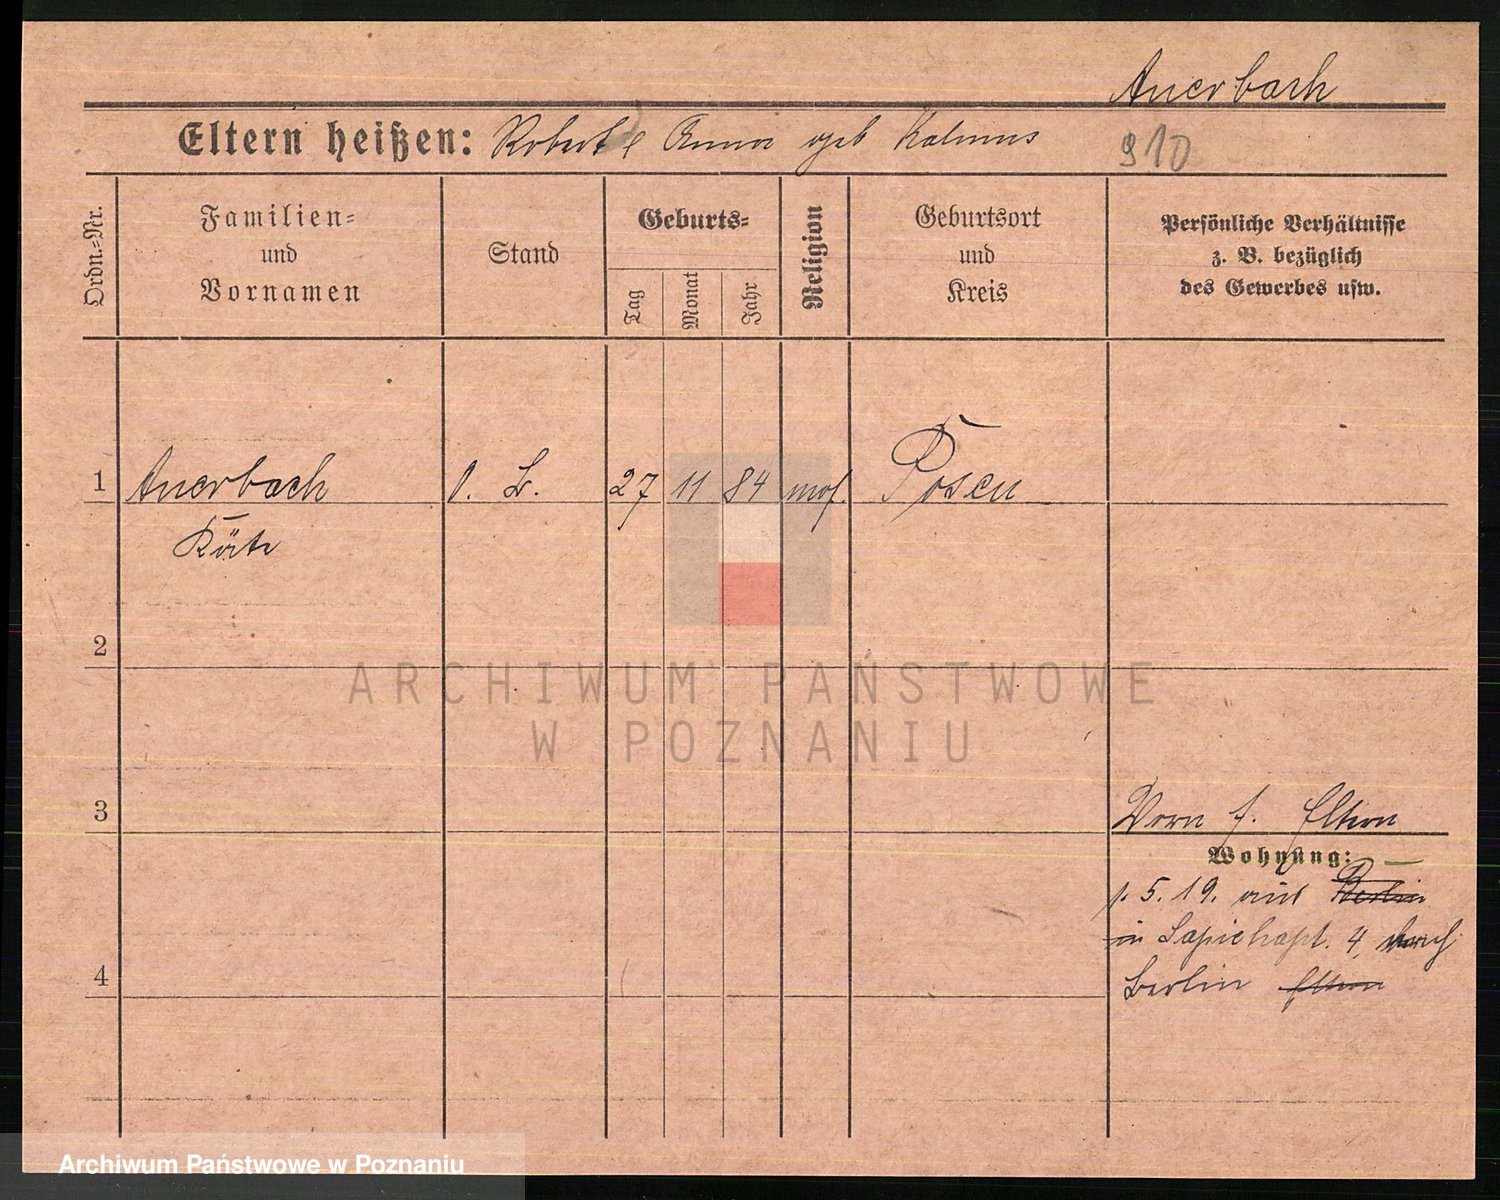 Auerbach
Eltern heißen: Robert & Anna geb Kalmus
910
Ordn.=Nr.
Familien=
und
Vornamen
Stand
Geburts=
Tag
Monat
Jahr
Religion
Geburtsort
und
Kreis
Persönliche Verhältnisse
z. B. bezüglich
des Gewerbes usw.
1 Auerbach o. B. 27 11 84 mos. Posen
Käte
2
3
Vorn f. Eltern
Wohnung:
5. 19. aus Berlin
in Sapiehapl. 4,
4
Berlin Eltern
ARCHIWUM PAŃSTWOWE
W POZNANIU
Archiwum Państwowe w Poznaniu